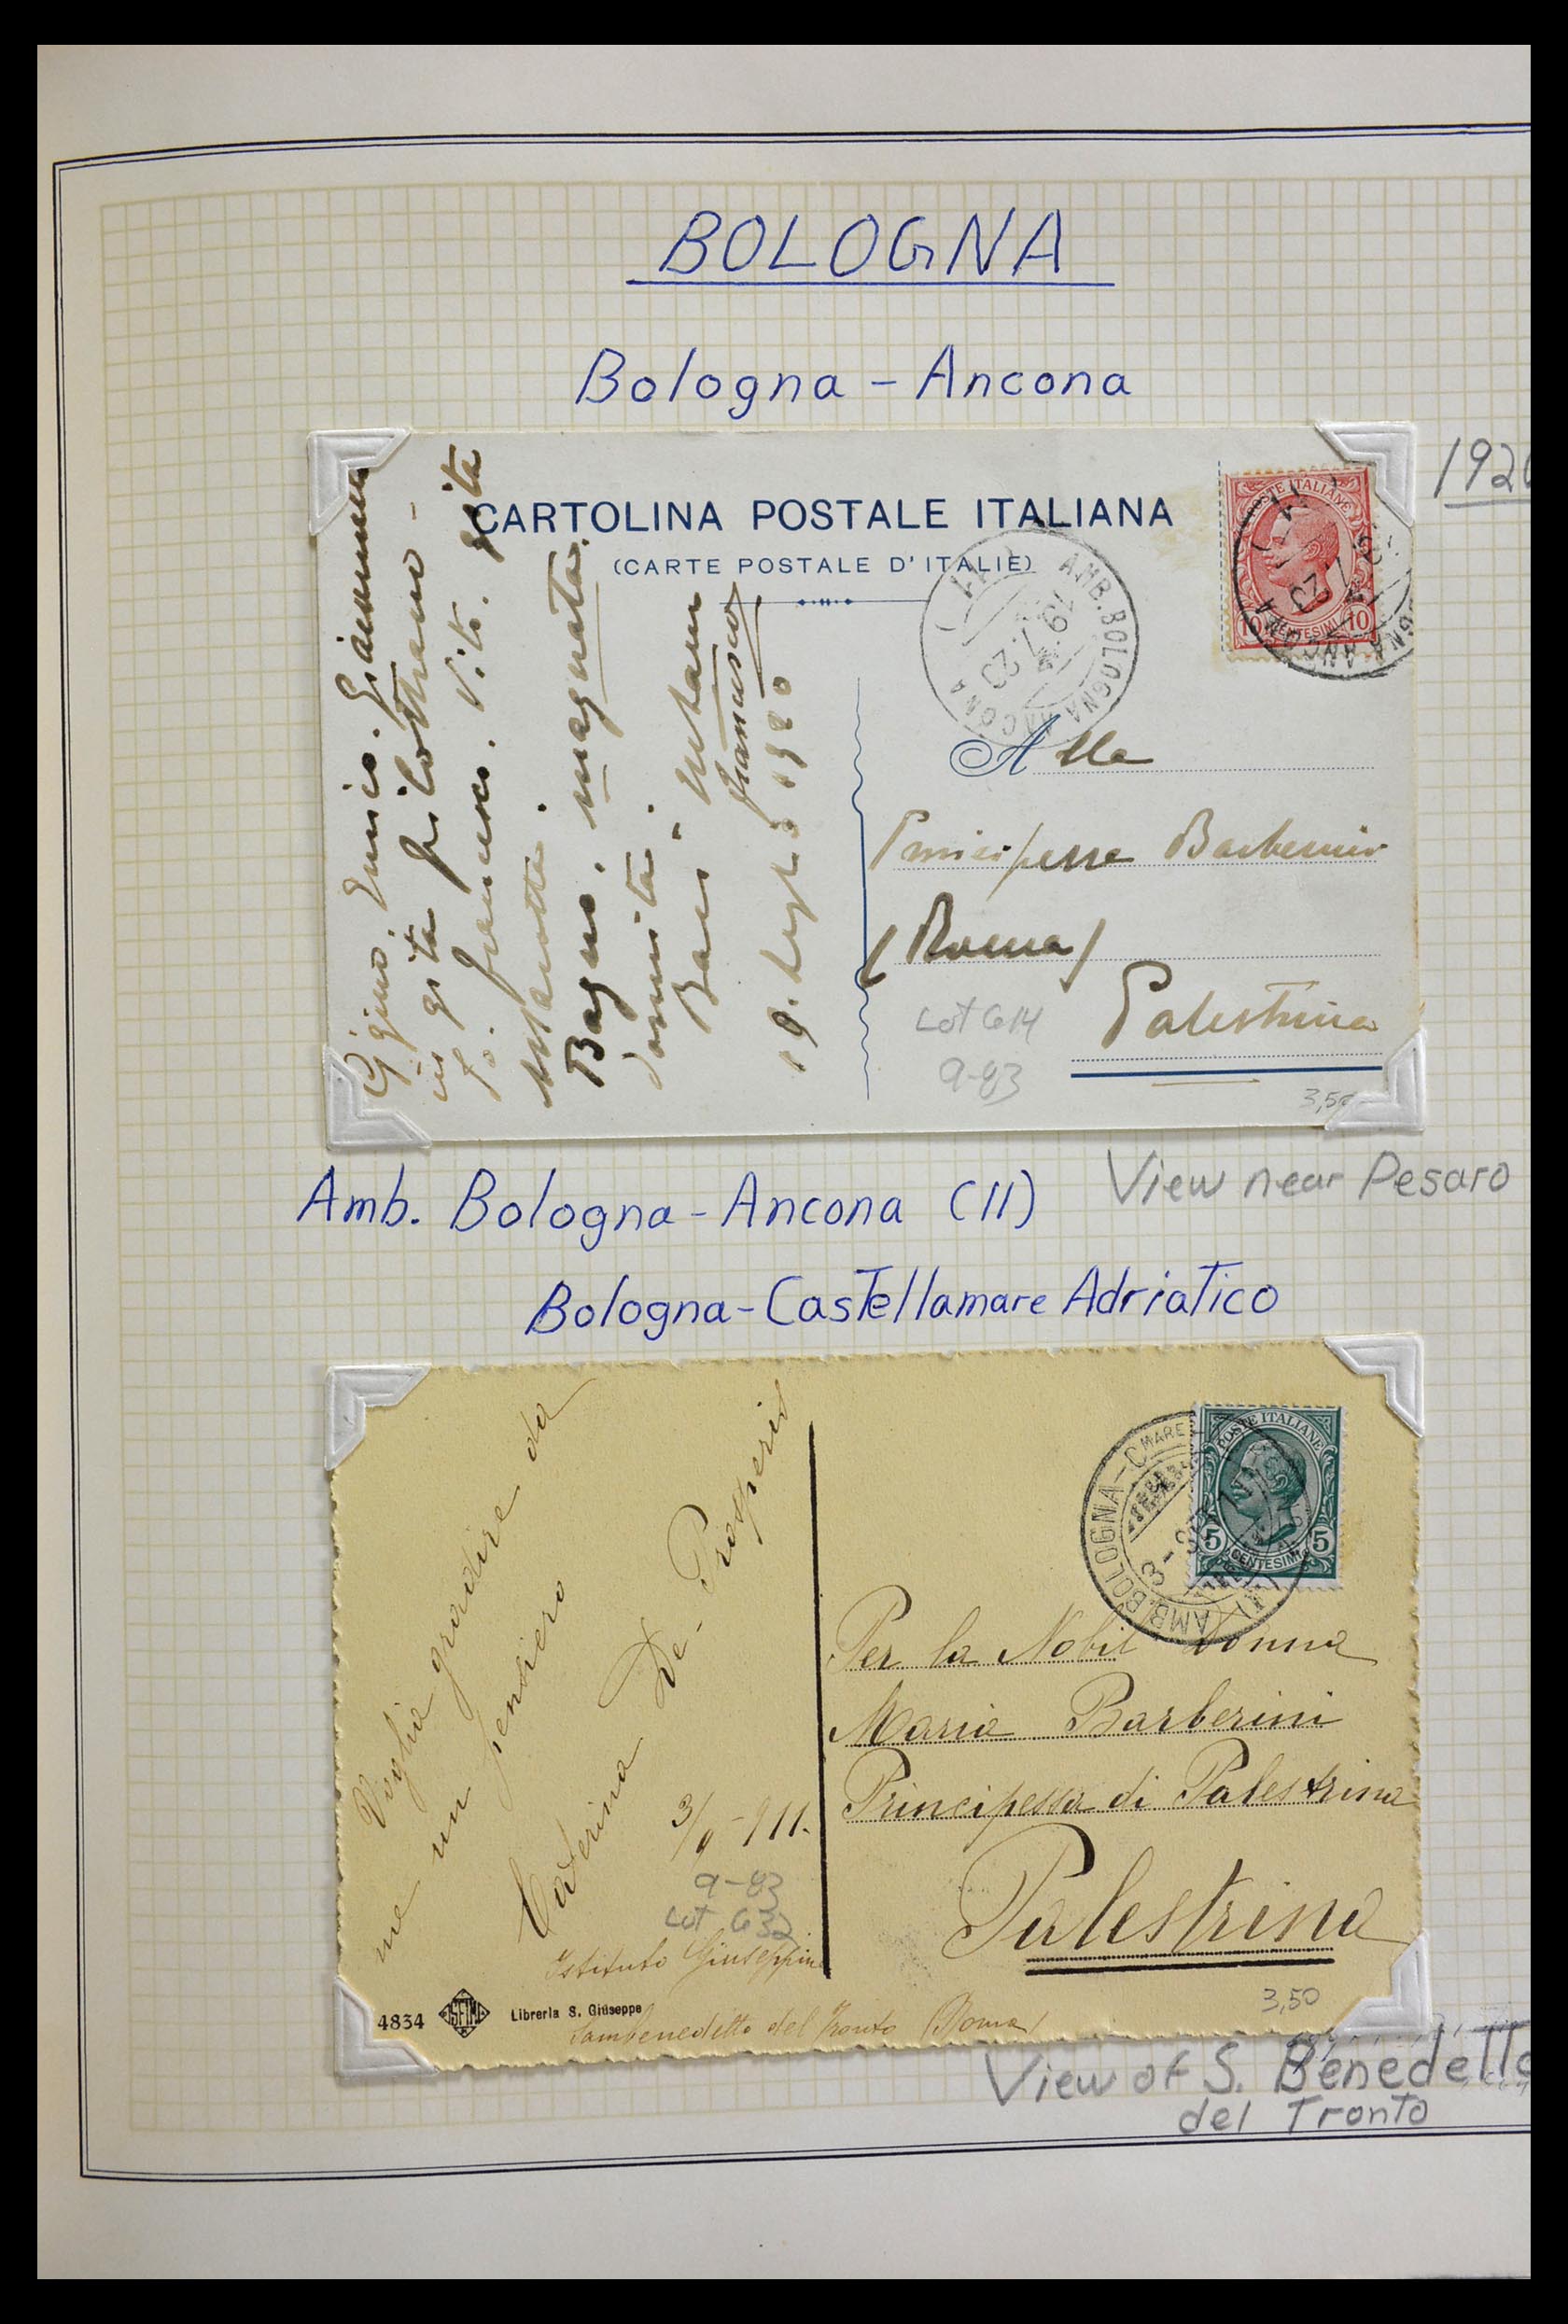 BOLOGNA
Bologna - Ancona
192
CARTOLINA POSTALE ITALIANA
(CARTE POSTALE D'ITALIE)
POSTE ITALIANE
10 CENTESIMI 10
AMB. BOLOGNA ANCONA
19. 7. 20
Alla
Principessa Barberini
(Roma)
Palestrina
Lot 614
9-83
3,50
in gita
francesco. Vito. gita
Bagno. magnata.
19. luglio 1920
Amb. Bologna - Ancona (II)
View near Pesaro
Bologna - Castellamare Adriatico
POSTE ITALIANE
5 CENTESIMI 5
AMB. BOLOGNA - C MARE
Voglia gradire da
me un pensiero
Caterina De-Prosperis
3/ -911.
9-83
Lot 632
Istituto Giuseppin
Sambenedetto del Tronto (Roma)
Per la Nobil Donna
Maria Barberini
Principessa di Palestrina
Palestrina
3,50
4834
Libreria S. Giuseppe
View of S. Benedetto
del Tronto